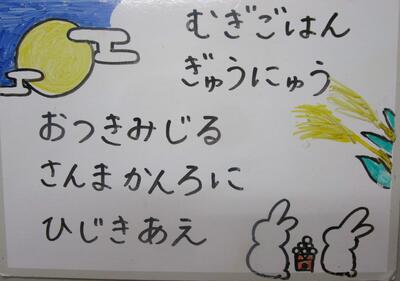 むぎごはん
ぎゅうにゅう
おつきみじる
さんまかんろに
ひじきあえ